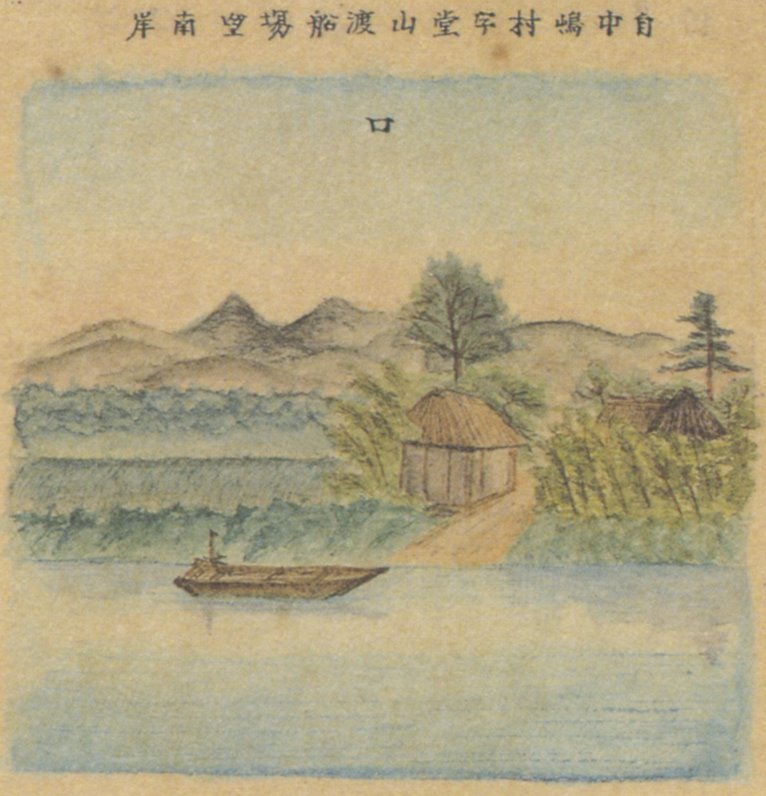 自中嶋村字堂山渡船場望南岸
ロ